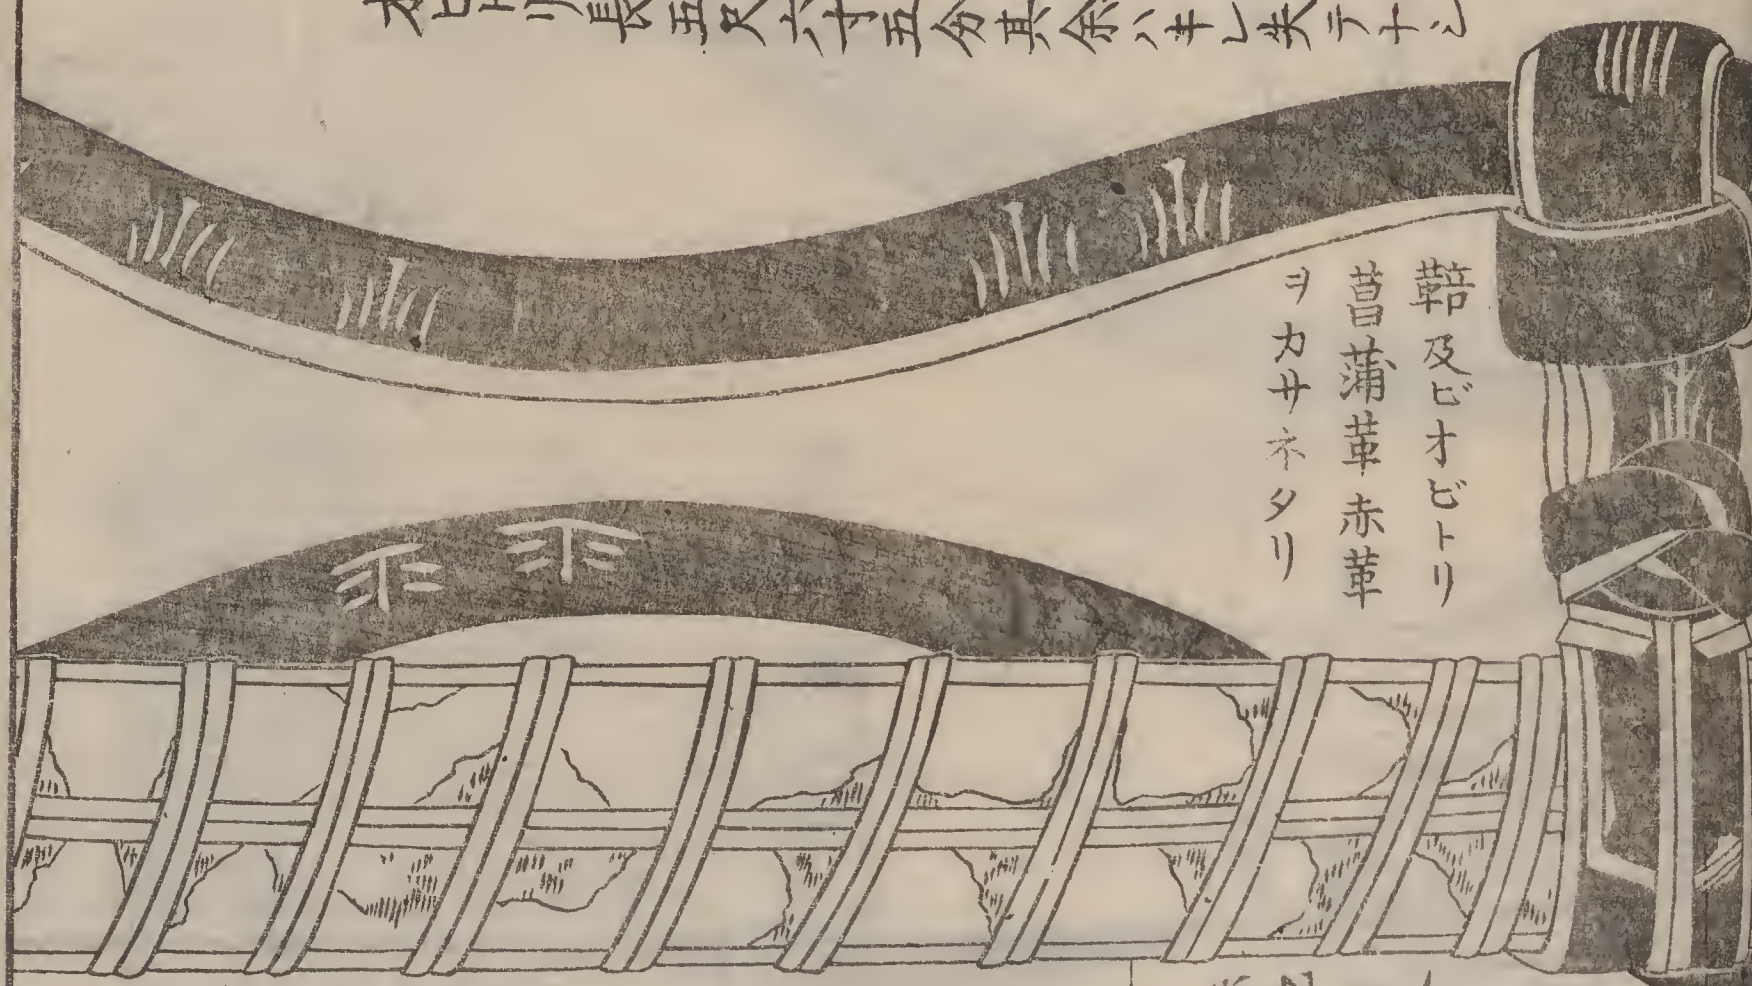 オビトリ長五尺六寸五分其余ハキレ失テナシ
及ビオビトリ
菖蒲革赤革
ヲカサネタリ